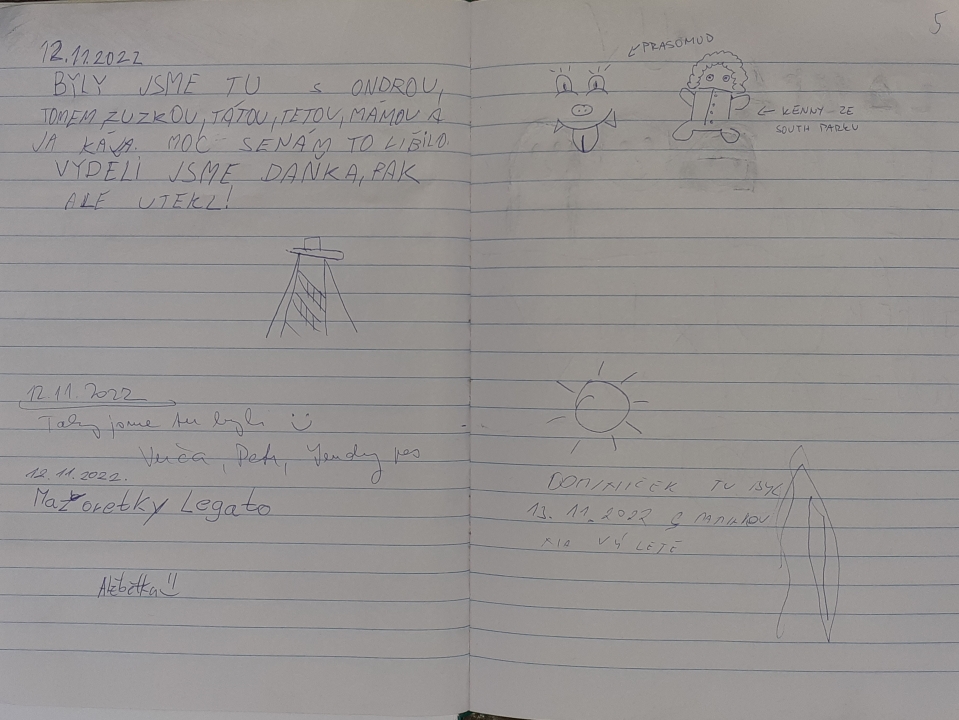 12.11.2022
BYLY JSME TU S ONDROU,
TOMEM, ZUZKOU, TÁTOU, TETOU, MÁMOU A
JÁ KÁJA. MOC SENÁM TO LÍBÍLO.
VYDĚLI JSME DAŇKA, PAK
ALE UTEKL!
12.11.2022
Taky jsme tu byli
Verča, Petr, pes
12.11.2022.
Mažoretky Legato
Alžbětka
5
PRASOMUD
KENNY ZE
SOUTH PARKU
DOMINIČEK TU BYL
13. 11. 2022 S MAMINKOU
NA VÝLETĚ